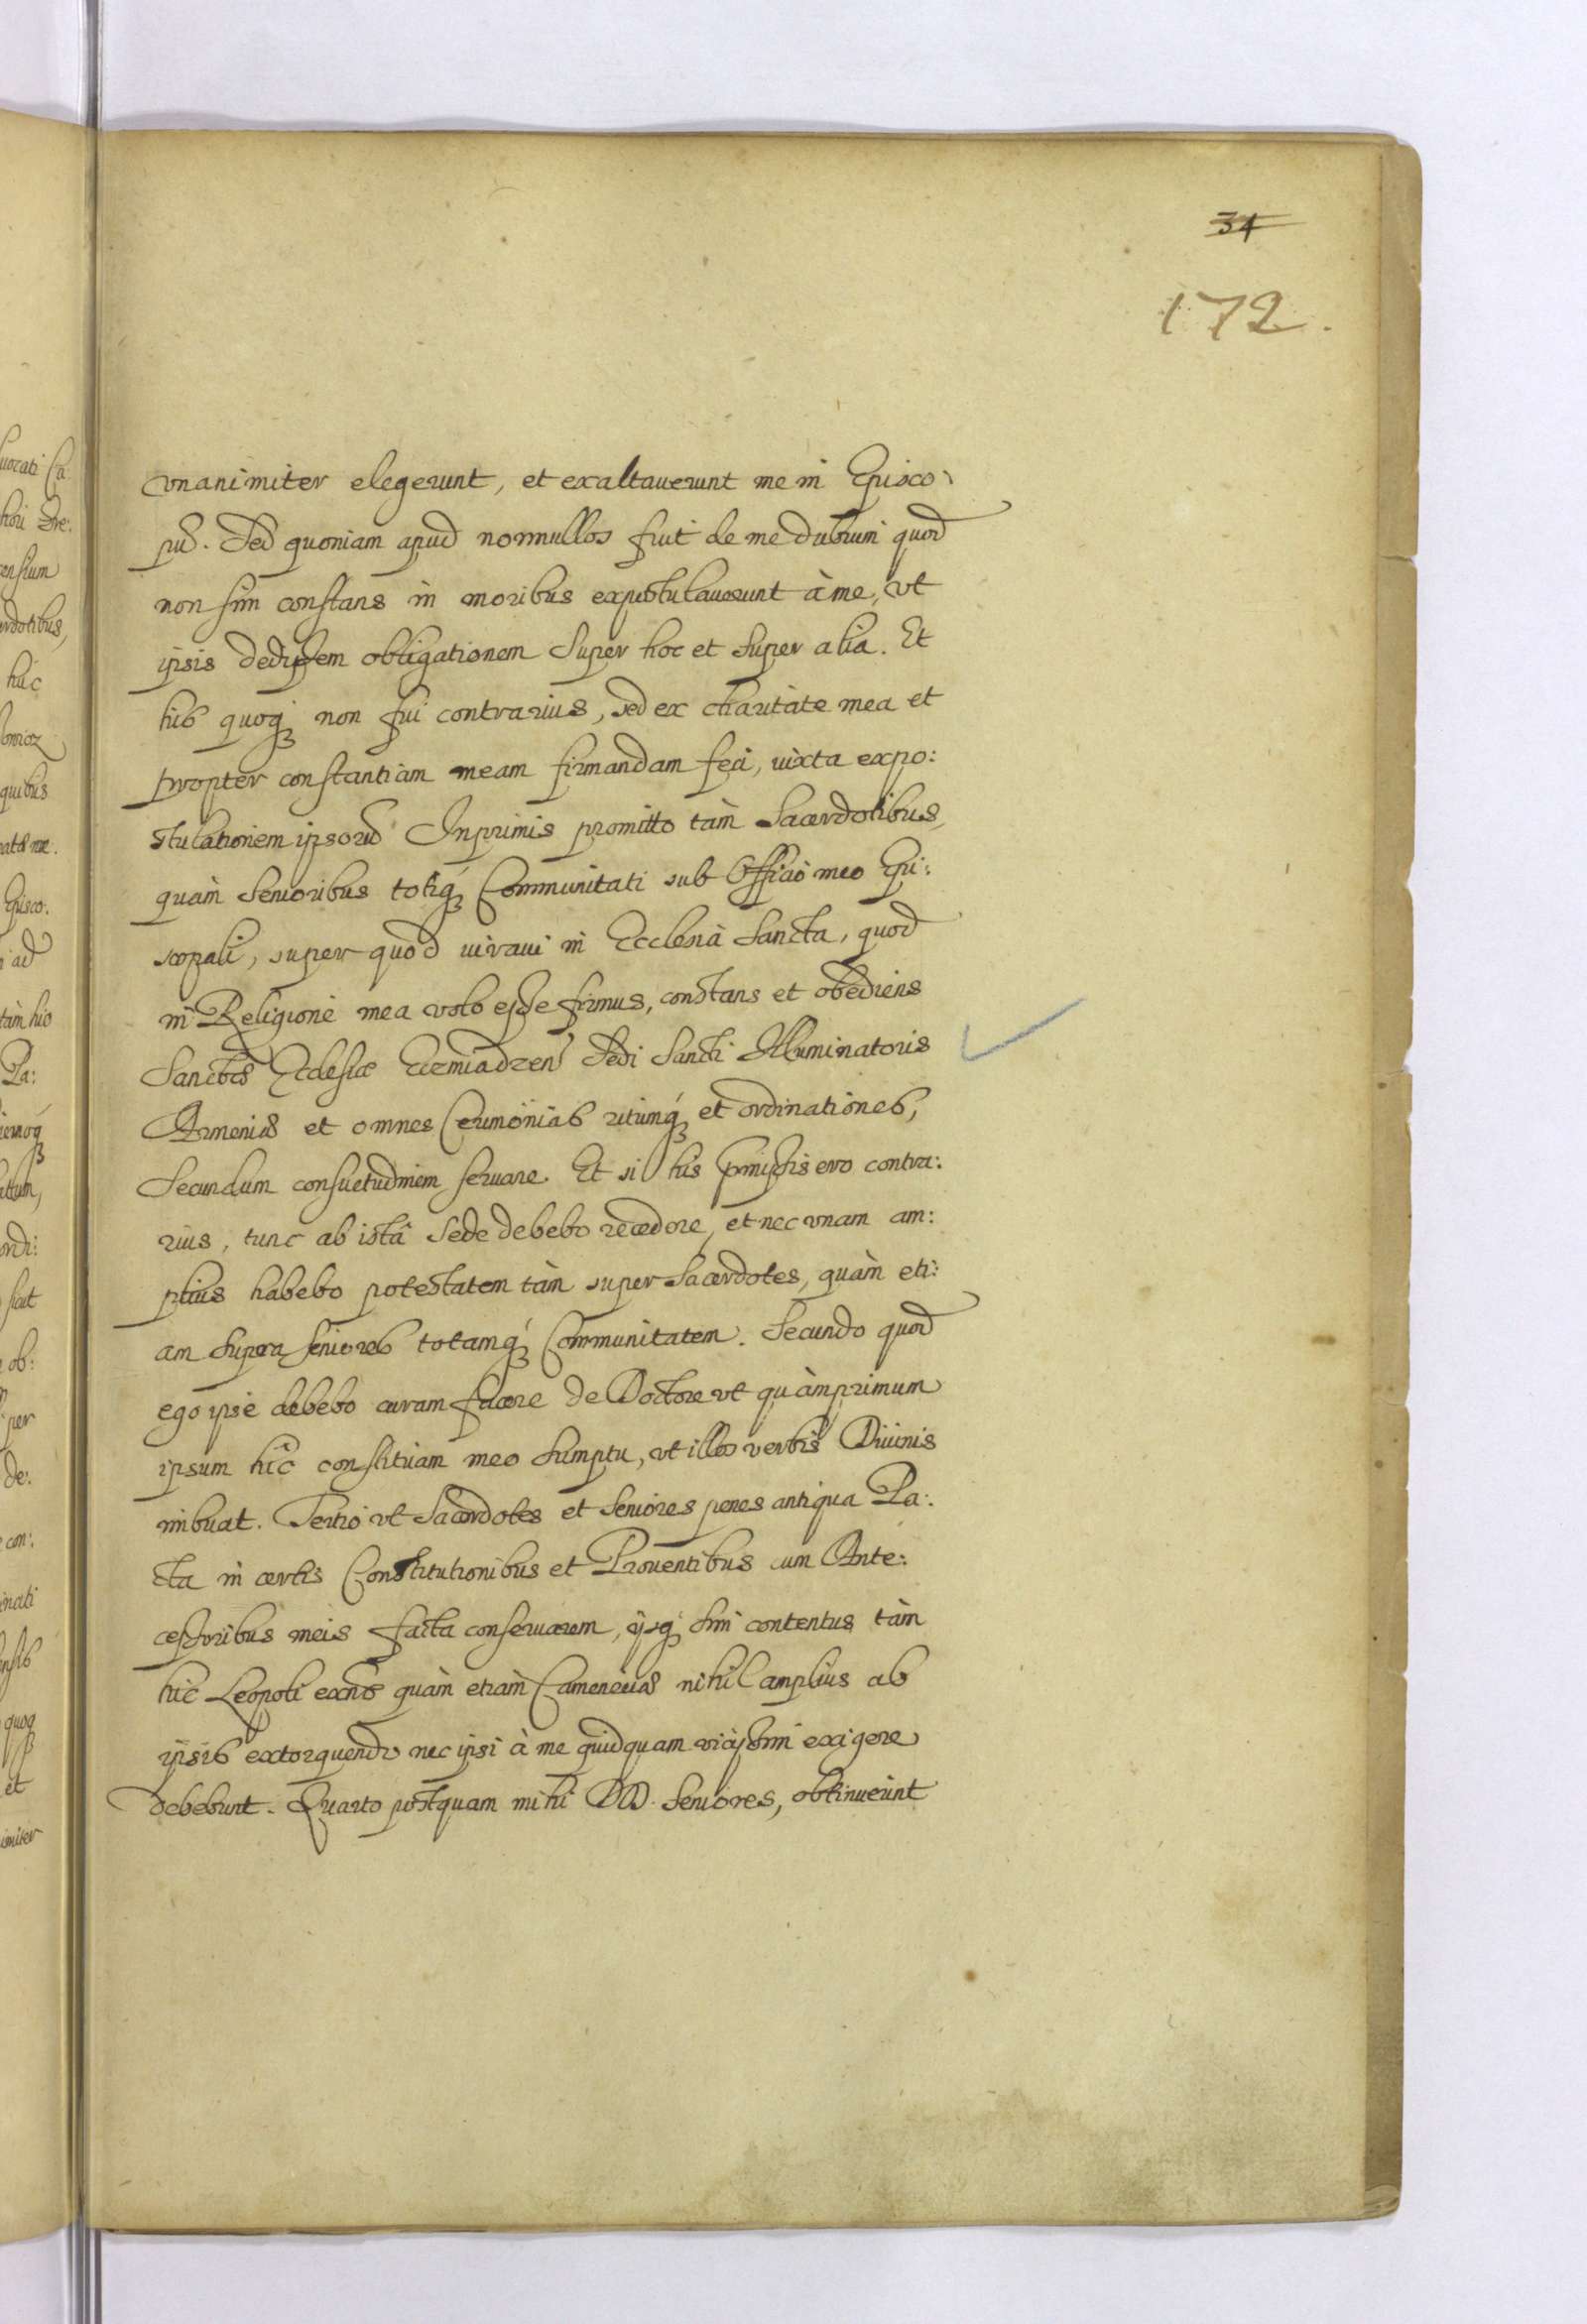 34
172.
vnanimiter elegerunt, et exaltauerunt me in Episco:
pũ. Sed quoniam apud nonnullos fuit de me dubium quod
non sim constans in moribus expostulauerunt à me, vt
ipsis dedissem obligationem super hoc et super alia. Et
his quoq; non fui contrarius, sed ex charitate mea et
propter constantiam meam firmandam feci, iuxta expo:
stulationem ipsorũ Inprimis promitto tàm Sacerdotibus,
quàm Senioribus totiq; Communitati sub Officio meo Epi:
scopali, super quod iuraui in Ecclesià Sancta, quod
in Religione mea volo esse firmus, constans et obediens
Sanctæ Ecclesiæ Ecemiadzen Sedi Sancti Illuminatoris
Armeniæ et omnes Ceremonias ritumq; et ordinationes,
Secundum consuetudinem seruare. Et si his pmissis ero contra:
rius, tunc ab istâ Sede debebo recedere, et nec vnam am:
plius habebo potestatem tàm super Sacerdotes, quàm eti:
am supra seniores totamq; Communitatem. Secundo quod
ego ipse debebo curam facere de Doctore vt quàmprimum
ipsum hîc constituam meo Sumptu, vt illos verbis Diuinis
imbuat. Tertio vt Sacerdotes et Seniores penes antiqua Pa:
cta in certis Constitutionibus et Prouentibus cum Ante:
cessoribus meis facta conseruarem, ijsq; sim contentus tàm
hîc Leopoli exñs quàm etiàm Cameneciæ nihil amplius ab
ipsis extorquendo nec ipsi à me quidquam vicissim exigere
debebunt. Quarto postquam mihi DD. Seniores, obtinuerint